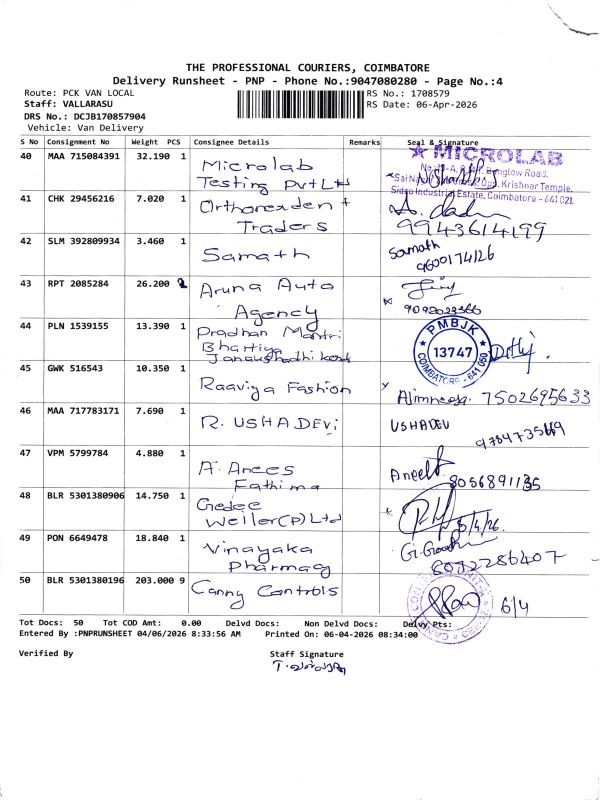 THE PROFESSIONAL COURIERS, COIMBATORE
Delivery Runsheet - PNP - Phone No.:9047080280 - Page No.:4
Route: PCK VAN LOCAL
RS No.: 1708579
Staff: VALLARASU
RS Date: 06-Apr-2026
DRS No.: DCJB170857904
Vehicle: Van Delivery
S No Consignment No Weight PCS Consignee Details Remarks Seal & Signature
40 MAA 715084391 32.190 1 Microlab
Testing Pvt Ltd
MICROLAB
Sidco Industrial Estate, Coimbatore - 641 021.
41 CHK 29456216 7.020 1
Traders
9943614199
42 SLM 392809934 3.460 1 Samath
Samath
9600174126
43 RPT 2085284 26.200 Aruna Auto
Agency
44 PLN 1539155 13.390 1 Pradhan Mantri
Bhartiya
PMBJK
13747
COIMBATORE - 641 050
45 GWK 516543 10.350 1 Raaviya Fashion
7502695633
46 MAA 717783171 7.690 1 R. USHADEVi
USHADEVi
47 VPM 5799784 4.880 1 A. Anees
Fathima
8056891135
48 BLR 5301380906 14.750 1 Gedee
Weiler(P)Ltd
49 PON 6649478 18.840 1 Vinayaka
Pharmacy
50 BLR 5301380196 203.000 9 Canny Controls
6/4
Tot Docs: 50 Tot COD Amt: 0.00 Delvd Docs: Non Delvd Docs: Delvy Pts:
Entered By :PNPRUNSHEET 04/06/2026 8:33:56 AM Printed On: 06-04-2026 08:34:00
Verified By
Staff Signature